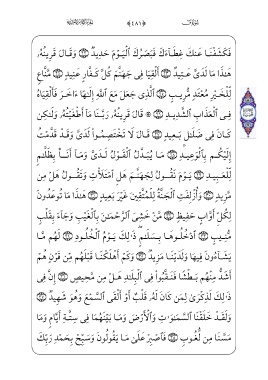 ﴿٤٨١﴾
فَكَشَفْنَا عَنكَ غِطَآءَكَ فَبَصَرُكَ ٱلْيَوْمَ حَدِيدٌ ۝ وَقَالَ قَرِينُهُۥ
هَٰذَا مَا لَدَىَّ عَتِيدٌ ۝ أَلْقِيَا فِى جَهَنَّمَ كُلَّ كَفَّارٍ عَنِيدٍ ۝ مَّنَّاعٍ
لِّلْخَيْرِ مُعْتَدٍ مُّرِيبٍ ۝ ٱلَّذِى جَعَلَ مَعَ ٱللَّهِ إِلَٰهًا ءَاخَرَ فَأَلْقِيَاهُ
فِى ٱلْعَذَابِ ٱلشَّدِيدِ ۝ ۞ قَالَ قَرِينُهُۥ رَبَّنَا مَآ أَطْغَيْتُهُۥ وَلَٰكِن
كَانَ فِى ضَلَٰلٍۭ بَعِيدٍ ۝ قَالَ لَا تَخْتَصِمُوا۟ لَدَىَّ وَقَدْ قَدَّمْتُ
إِلَيْكُم بِٱلْوَعِيدِ ۝ مَا يُبَدَّلُ ٱلْقَوْلُ لَدَىَّ وَمَآ أَنَا۠ بِظَلَّٰمٍ
لِّلْعَبِيدِ ۝ يَوْمَ نَقُولُ لِجَهَنَّمَ هَلِ ٱمْتَلَأْتِ وَتَقُولُ هَلْ مِن
مَّزِيدٍ ۝ وَأُزْلِفَتِ ٱلْجَنَّةُ لِلْمُتَّقِينَ غَيْرَ بَعِيدٍ ۝ هَٰذَا مَا تُوعَدُونَ
لِكُلِّ أَوَّابٍ حَفِيظٍ ۝ مَّنْ خَشِىَ ٱلرَّحْمَٰنَ بِٱلْغَيْبِ وَجَآءَ بِقَلْبٍ
مُّنِيبٍ ۝ ٱدْخُلُوهَا بِسَلَٰمٍ ذَٰلِكَ يَوْمُ ٱلْخُلُودِ ۝ لَهُم مَّا
يَشَآءُونَ فِيهَا وَلَدَيْنَا مَزِيدٌ ۝ وَكَمْ أَهْلَكْنَا قَبْلَهُم مِّن قَرْنٍ هُمْ
أَشَدُّ مِنْهُم بَطْشًا فَنَقَّبُوا۟ فِى ٱلْبِلَٰدِ هَلْ مِن مَّحِيصٍ ۝ إِنَّ فِى
ذَٰلِكَ لَذِكْرَىٰ لِمَن كَانَ لَهُۥ قَلْبٌ أَوْ أَلْقَى ٱلسَّمْعَ وَهُوَ شَهِيدٌ ۝
وَلَقَدْ خَلَقْنَا ٱلسَّمَٰوَٰتِ وَٱلْأَرْضَ وَمَا بَيْنَهُمَا فِى سِتَّةِ أَيَّامٍ وَمَا
مَسَّنَا مِن لُّغُوبٍ ۝ فَٱصْبِرْ عَلَىٰ مَا يَقُولُونَ وَسَبِّحْ بِحَمْدِ رَبِّكَ